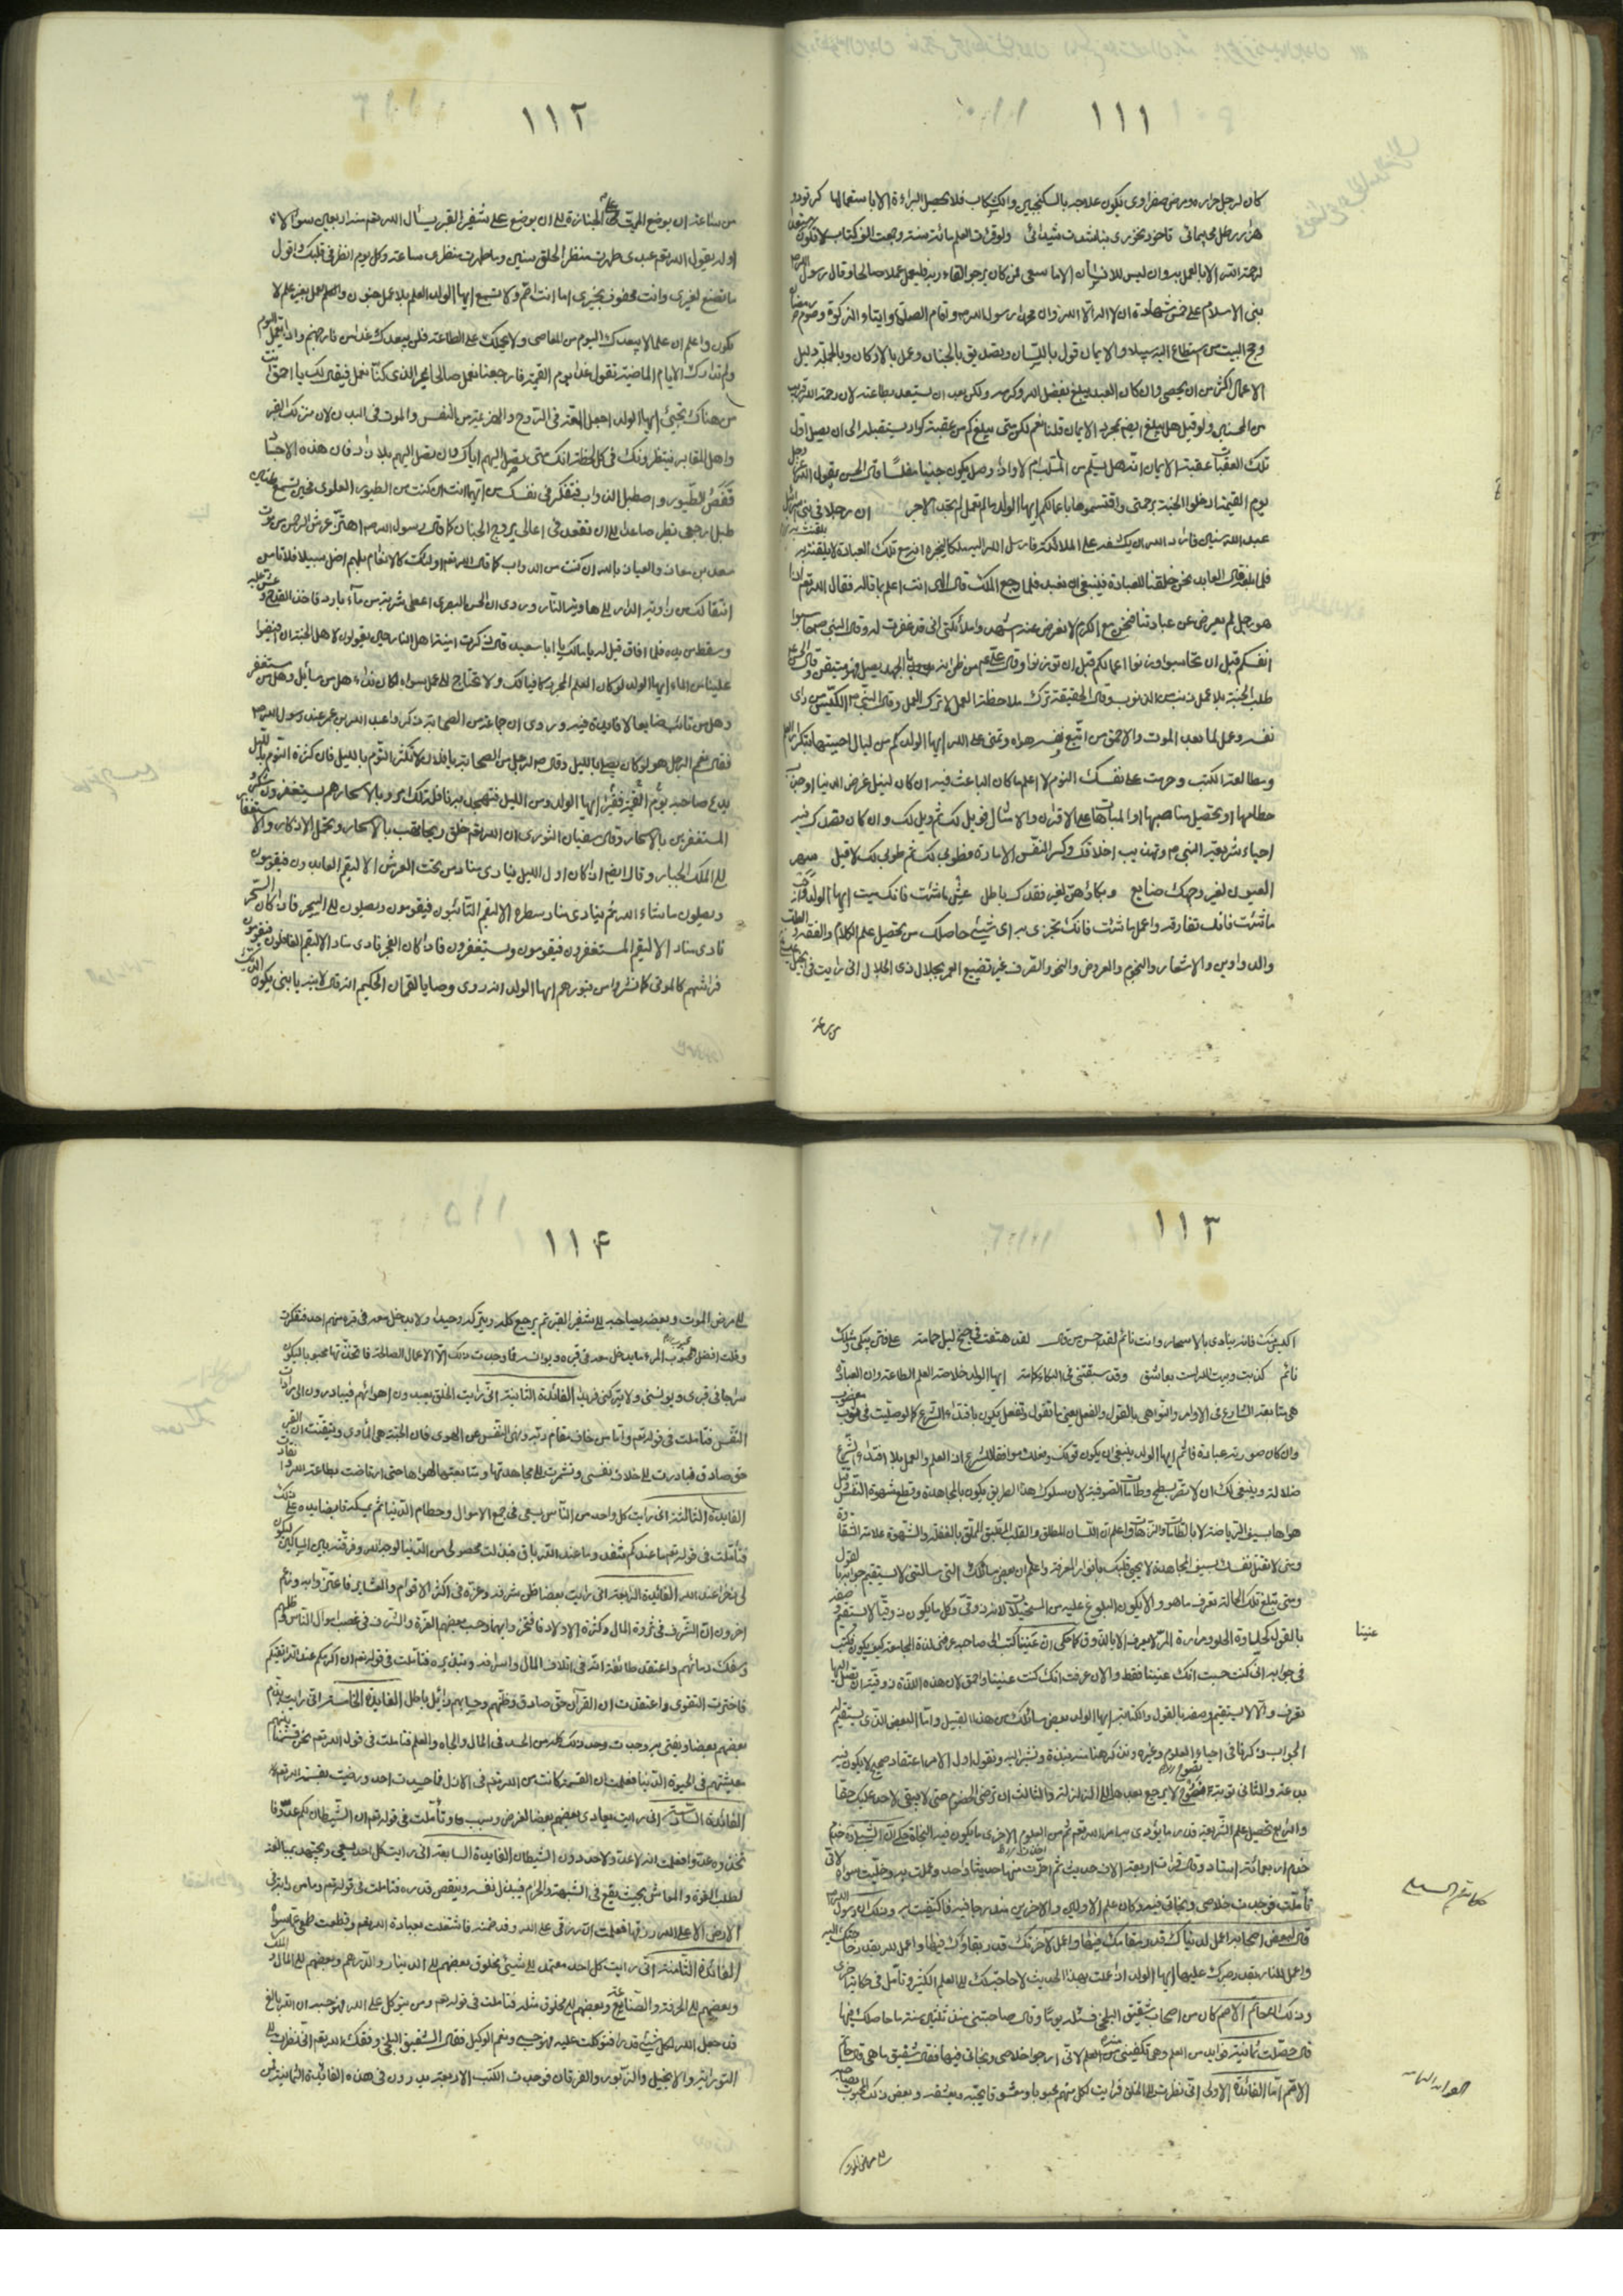 ١١١
كان لرجل حرارة ومرض صفراوى يكون علاجه بالسكنجبين والكشكاب فلا يحصل البراءة الا باستعمالها كر تودو
هزار رطل مى پيمائى تا مى نخورى نباشدت شيدائى ولو قرئت العلم مائة سنة وجمعت الف كتاب لا تكون مستعدا
لرحمة الله الا بالعمل به وان ليس للانسان الا ما سعى فمن كان يرجو لقاء ربه فليعمل عملا صالحا وقال رسول الله
بنى الاسلام على خمس شهادة ان لا اله الا الله وان محمدا رسول الله واقام الصلوة وايتاء الزكوة وصوم رمضان
وحج البيت من استطاع اليه سبيلا والايمان قول باللسان وتصديق بالجنان وعمل بالاركان وبالجملة دليل
الاعمال اكثر من ان يحصى وان كان العبد يبلغ بفضل الله وكرمه ولكن بعد ان يستعد بطاعته لان رحمة الله قريب
من المحسنين ولو قيل هل يبلغ ايضا بمجرد الايمان قلنا نعم لكن متى يبلغ كم من عقبة كؤد يستقبله الى ان يصل اول
تلك العقبات عقبة الايمان انه هل يسلم من السلب ام لا واذا وصل يكون جنينا مفلسا وقال الحسن يقول الله عز وجل
يوم القيمة ادخلوا الجنة برحمتى واقتسموها باعمالكم ايها الولد ما لم تعمل لم تجد الاجر ان رجلا فى بنى اسرائيل
عبد الله سنين فاراد الله ان يكشفه على الملائكة فارسل الله اليه ملكا ليخبره انه مع تلك العبادة لا يليق به
فلما بلغه قال العابد نحن خلقنا للعبادة فينبغى ان نعبد فلما رجع الملك قال الهى انت اعلم بما قاله فقال الله تعم اذا
هو رجل لم يعرض عن عبادتنا فنحن مع الكرم لا نعرض عنه اشهدوا ملائكتى انى قد غفرت له وقال النبى ص حاسبوا
انفسكم قبل ان تحاسبوا وزنوا اعمالكم قبل ان توزنوا وقال على عم من ظن انه بدون الجهد يصل فهو متمن وقال الحسن
طلب الجنة بلا عمل ذنب من الذنوب وقال الحقيقة ترك ملاحظة العمل لا ترك العمل وقال النبى ص الكيس من دان
نفسه وعمل لما بعد الموت والاحمق من اتبع نفسه هواه وتمنى على الله ايها الولد كم من ليال احييتها بتكرار العلم
ومطالعة الكتب وحرمت على نفسك النوم لا اعلم ما كان الباعث فيه ان كان لنيل غرض الدنيا وجذب
حطامها وتحصيل مناصبها والمباهات على الاقران والامثال فويل لك ثم ويل لك وان كان قصدك فيه
احياء شريعة النبى ص وتهذيب اخلاقك وكسر النفس الامارة فطوبى لك ثم طوبى لك لا قيل سهر
العيون لغير وجهك ضايع وبكاؤهن لغير فقدك باطل عش ما شئت فانك ميت ايها الولد
ما شئت فانك تفارقه واعمل ما شئت فانك تجزى به اى شيئ حاصلك من تحصيل علم الكلام والفقه والطب
والدواوين والاشعار والنجوم والعروض والنحو والتصريف غير تضييع العمر بجلال ذى الجلال انى رايت فى انجيل
من ساعة
١١٢
من ساعة ان يوضع الميت على الجنازة الى ان يوضع على شفير القبر يسأل الله تعم منه اربعين سؤالا
اوله يقول الله تعم عبدى طهرت منظر الخلق سنين وما طهرت منظرى ساعة وكل يوم انظر فى قلبك واقول
ما تصنع لغيرى وانت محفوف بخيرى اما انت اصم ولا تسمع ايها الولد العلم بلا عمل جنون والعمل بغير علم لا
يكون واعلم ان علما لا يبعدك اليوم من المعاصى ولا يحملك على الطاعة فلن يبعدك غدا من نار جهنم واذا لم تعمل اليوم
ولم تدارك الايام الماضية تقول غدا يوم القيمة فارجعنا نعمل صالحا غير الذى كنا نعمل فيقال لك يا احمق انت
من هناك تجيئ ايها الولد اجعل الهمة فى الروح والهزيمة من النفس والموت فى البدن لان منزلك القبر
واهل المقابر ينتظرونك فى كل لحظة انك متى تصل اليهم اياك وان تصل اليهم بلا زاد فان هذه الاجساد
قفص الطيور واصطبل الدواب فتفكر فى نفسك من ايهما انت ان كنت من الطيور العلوى فحين تسمع
طبل ارجعى تطير صاعدا الى ان تقعد فى اعالى بروج الجنان كما قال رسول الله ص اهتز عرش الرحمن من موت
سعد بن معاذ والعياذ بالله ان كنت من الدواب كما قال الله تعم اولئك كالانعام بل هم اضل سبيلا فلا تامن
انتقالك من زاوية الدار الى هاوية النار وروى ان الحسن البصرى اعطى شربة من ماء بارد فاخذ القدح وغشى عليه
وسقط من يده فلما افاق قيل له يا مالك يا ابا سعيد قال ذكرت امنية اهل النار حين يقولون لاهل الجنة ان افيضوا
علينا من الماء ايها الولد لو كان العلم المجرد كافيا لك ولا تحتاج الى عمل سواه لكان نداء هل من سائل وهل من مستغفر
وهل من تائب ضايعا لا فايدة فيه وروى ان جماعة من الصحابة ذكروا عبد الله بن عمر عند رسول الله ص
فقال نعم الرجل هو لو كان يصلى بالليل وقال ص لرجل من الصحابة يا فلان لا تكثر النوم بالليل فان كثرة النوم بالليل
يدع صاحبه يوم القيمة فقيرا ايها الولد ومن الليل فتهجد به نافلة لك امر وبالاسحار هم يستغفرون شكر
المستغفرين بالاسحار وقال سفيان الثورى ان الله تعم خلق ريحا تهب بالاسحار وتحمل الاذكار والاستغفار
الى الملك الجبار وقال ايضا اذا كان اول الليل ينادى مناد من تحت العرش الا ليقم العابدون فيقومون
ويصلون ما شاء الله ثم ينادى مناد وسطه الا ليقم القانتون فيقومون ويصلون الى السحر فاذا كان السحر
نادى مناد الا ليقم المستغفرون فيقومون ويستغفرون فاذا كان الفجر نادى مناد الا ليقم الغافلون فيقومون من
فراشهم كالموتى كما نشروا من قبورهم ايها الولد انه روى وصايا لقمان الحكيم انه قال لابنه يا بنى لا يكون الديك
١١٣
اكيس منك فانه ينادى بالاسحار وانت نائم لقد حسن من قال لقد هتفت فى جنح ليل حمامة على فنن تبكى وانك
نائم كذبت وبيت الله لست بعاشق وقد سبقتنى فى البكاء حمامة ايها الولد خلاصة العلم الطاعة وان العبادة
هى متابعة الشارع فى الاوامر والنواهى بالقول والفعل يعنى ما تقول وتفعل يكون باقتداء الشرع كما لو صليت فى ثوب مغصوب
وان كان صورته عبادة فاثم ايها الولد ينبغى ان يكون قولك وفعلك موافقا للشرع اذ العلم والعمل بلا اقتداء الشرع
ضلالة وينبغى لك ان لا تغتر بشطح وطامات الصوفية لان سلوك هذا الطريق يكون بالمجاهدة وقطع شهوة النفس وقتل
هواها بسيف الرياضة لا بالطامات والترهات واعلم ان اللسان المطلق والقلب المطبق المملو بالغفلة والشهوة علامة الشقاوة
ومتى لا تقتل نفسك بسيف المجاهدة لا يحيى قلبك بانوار المعرفة واعلم ان بعض مسائلك التى سالتنى لا يستقيم جوابها بالقول
ومتى تبلغ تلك الحالة تعرف ما هو والا يكون البلوغ عليه من المستحيلات لانه ذوقى وكل ما يكون ذوقيا لا يستقيم وصفه
بالقول كحلاوة الحلو ومرارة المر لا يعرف الا بالذوق كما حكى ان عنينا كتب الى صاحبه عرفنى لذة المجامعة كيف يكون فكتب
فى جوابه انى كنت حسبت انك عنينا فقط والان عرفت انك كنت عنينا واحمق لان هذه اللذة ذوقية ان تصل اليها
تعرف والا لا يستقيم وصفه بالقول والكتابة ايها الولد بعض مسائلك من هذا القبيل واما البعض الذى يستقيم له
الجواب ذكرنا فى احياء العلوم وغيره ونذكر هنا منه نبذة ونشير اليه ونقول اول الامر اعتقاد صحيح لا يكون فيه
بدعة والثانى توبة نصوح لا يرجع بعدها الى الزلة والثالث ان ترضى الخصوم حتى لا يبقى لاحد عليك حقا
والرابع تحصيل علم الشريعة قدر ما يؤدى به امر الله تعم ثم من العلوم الاخرى ما يكون فيه النجاة حكى ان الشبلى خدم
خدم اربعمائة استاد وقال قرئت اربعة الاف حديث ثم اخترت منها حديثا واحد وعملت به وخليت سواه لانى
تأملت فوجدت خلاصى ونجاتى فيه وكان علم الاولين والاخرين مندرجا فيه فاكتفيت به وذلك ان رسول الله ص
قال لبعض اصحابه اعمل لدنياك قدر مقامك فيها واعمل لآخرتك قدر بقاؤك فيها واعمل لله بقدر حاجتك اليه
واعمل للنار بقدر صبرك عليها ايها الولد اذا علمت بهذا الحديث لا حاجة لك الى العلم الكثير وتأمل فى حكاية اخرى
وذلك ان حاتم الاصم كان من اصحاب شقيق البلخى فسئله يوما وقال صاحبتنى منذ ثلثين سنة ما حاصلك فيها
قال حصلت ثمانية فوايد من العلم وهى تكفينى منه لانى ارجو خلاصى ونجاتى فيها فقال شقيق ما هى قال حاتم
الاصم اما الفائدة الاولى انى نظرت الى الخلق فرايت لكل منهم محبوبا ومعشوقا يحبه ويعشقه وبعض ذلك المحبوب يصاحبه
الى مرض الموت
عنينا
١١۴
الى مرض الموت وبعضه يصاحبه الى شفير القبر ثم يرجع كله ويتركه وحيدا ولا يدخل معه فى قبره منهم احد فتفكرت
وقلت افضل محبوب المرء ما يدخل معه فى قبره ويوانسه فما وجدت ذلك الا الاعمال الصالحة فاتخذتها محبوبا ليكون
سراجا فى قبرى ويونسنى ولا يتركنى فريدا الفائدة الثانية انى رايت الخلق يعبدون اهوائهم فيبادرون الى مراد
النفس فتاملت فى قوله تعم واما من خاف مقام ربه ونهى النفس عن الهوى فان الجنة هى المأوى وتيقنت ان القرآن
حق صادق فبادرت الى خلاف نفسى وتشمرت الى مجاهدتها وما تابعتها لهواها حتى ارتاضت بطاعة الله وانقادت
الفايدة الثالثة انى رايت كل واحد من الناس يسعى فى جمع الاموال وحطام الدنيا ثم يمسكه قابضا يده على ذلك
فتأملت فى قوله تعم ما عندكم ينفد وما عند الله باق فبذلت محصولى من الدنيا لوجه الله وفرقته بين المساكين ليكون
لى ذخرا عند الله الفائدة الرابعة انى رايت بعضا ظن شرفه وعزه فى اكثر الاقوام والعشاير فاعتز بهم وزعم
اخرون ان الشرف فى ثروة المال وكثرة الاولاد فافتخروا بها وحسب بعضهم العزة والشرف فى غصب اموال الناس وظلمهم
وسفك دمائهم واعتقد طائفة انه فى اتلاف المال واسرافه وتبذيره فتاملت فى قوله تعم ان اكرمكم عند الله اتقيكم
فاخترت التقوى واعتقدت ان القرآن حق صادق وظنهم وحسابهم زائل باطل الفايدة الخامسة انى رايت يذم
بعضهم بعضا ويغتابه فوجدت ذلك كله من الحسد فى المال والجاه والعلم فتاملت فى قوله الله تعم نحن قسمنا بينهم
معيشتهم فى الحيوة الدنيا فعلمت ان القسمة كانت من الله تعم فى الازل فما حسدت احد ورضيت بقسمة الله تعم
الفائدة السادسة انى رايت يعادى بعضهم بعضا لغرض وسبب ما وتأملت فى قوله تعم ان الشيطان لكم عدو فا
تخذوه عدوا فعلمت انه لا عدو لاحد دون الشيطان الفايدة السابعة انى رايت كل احد يسعى ويجتهد بمبالغة
لطلب القوة والمعاش بحيث يقع فى الشبهة والحرام فيذل نفسه وينقص قدره فتاملت فى قوله تعم وما من دابة فى
الارض الا على الله رزقها فعلمت ان رزقى على الله وقد ضمنه فاشتغلت بعبادة الله تعم وقطعت طمعى عما سواه
الفائدة الثامنة انى رايت كل احد معتمد الى شيئ مخلوق بعضهم الى الدينار والدرهم وبعضهم الى المال والملك
وبعضهم الى الحرفة والصنايع وبعضهم الى مخلوق مثله فتاملت فى قوله تعم ومن يتوكل على الله فهو حسبه ان الله بالغ
قد جعل الله لكل شيئ قدرا فتوكلت عليه فهو حسبى ونعم الوكيل فقال الشقيق البلخى وفقك الله تعم انى نظرت الى
التورية والانجيل والزبور والفرقان فوجدت الكتب الاربعة يدورون فى هذه الفائدة الثمانية فمن